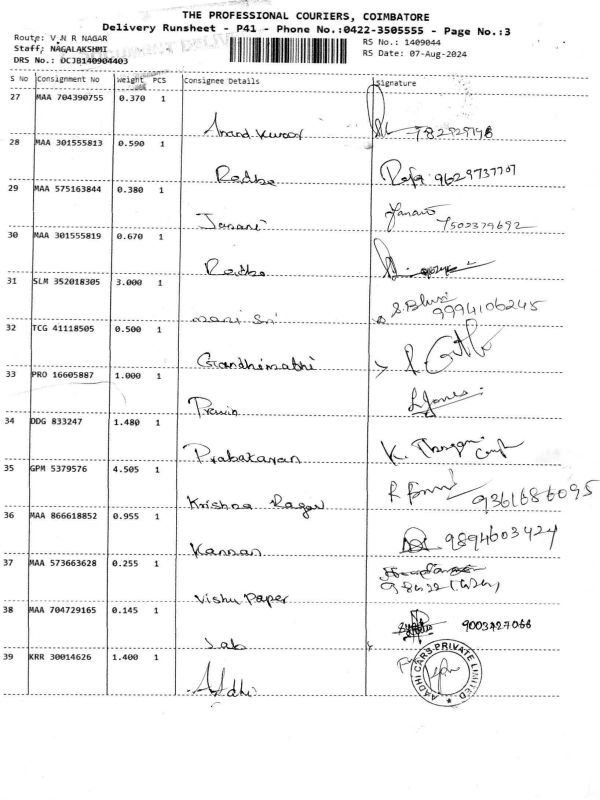 THE PROFESSIONAL COURIERS, COIMBATORE
Delivery Runsheet - P41 - Phone No.:0422-3505555 - Page No.:3
Route: V N R NAGAR
RS No.: 1409044
Staff: NAGALAKSHMI
RS Date: 07-Aug-2024
DRS No.: DCJB140904403
S No Consignment No Weight PCS Consignee Details Signature
27 MAA 704390755 0.370 1
Anand Kumar
28 MAA 301555813 0.590 1
Radha 9629737707
29 MAA 575163844 0.380 1
Janani Janani
7502379692
30 MAA 301555819 0.670 1
Radha
31 SLM 352018305 3.000 1
mani Sri 9994106245
32 TCG 41118505 0.500 1
Gandhimathi
33 PRO 16605887 1.000 1
Pravin
34 DDG 833247 1.480 1
Prabakaran
35 GPM 5379576 4.505 1
Krishna Ragav 9361686095
36 MAA 866618852 0.955 1
Kannan 9894603424
37 MAA 573663628 0.255 1
Vishu Paper
38 MAA 704729165 0.145 1
Jab 9003427066
39 KRR 30014626 1.400 1
AADHI CARS PRIVATE LIMITED
Aadhi